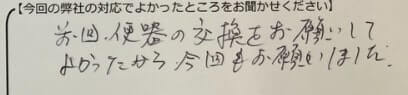 【今回の弊社の対応でよかったところをお聞かせください】
前回、便器の交換をお願いして
よかったから今回もお願いしました。